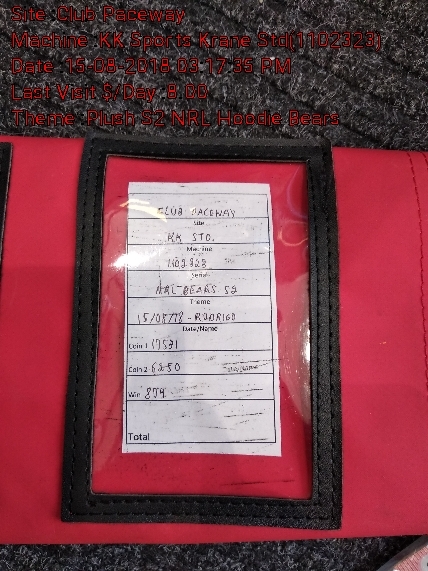 Site :Club Paceway
Machine :KK Sports Krane Std(1102323)
Date :15-08-2018 03:17:35 PM
Last Visit $/Day :8.00
Theme :Plush S2 NRL Hoodie Bears
CLUB PACEWAY
Site
KK STD.
Machine
1102323
Serial
NRL BEARS S2
Theme
15/08/18 - RODRIGO
Date/Name
Coin 1 17531
Coin 2 6250
Win 854
Total